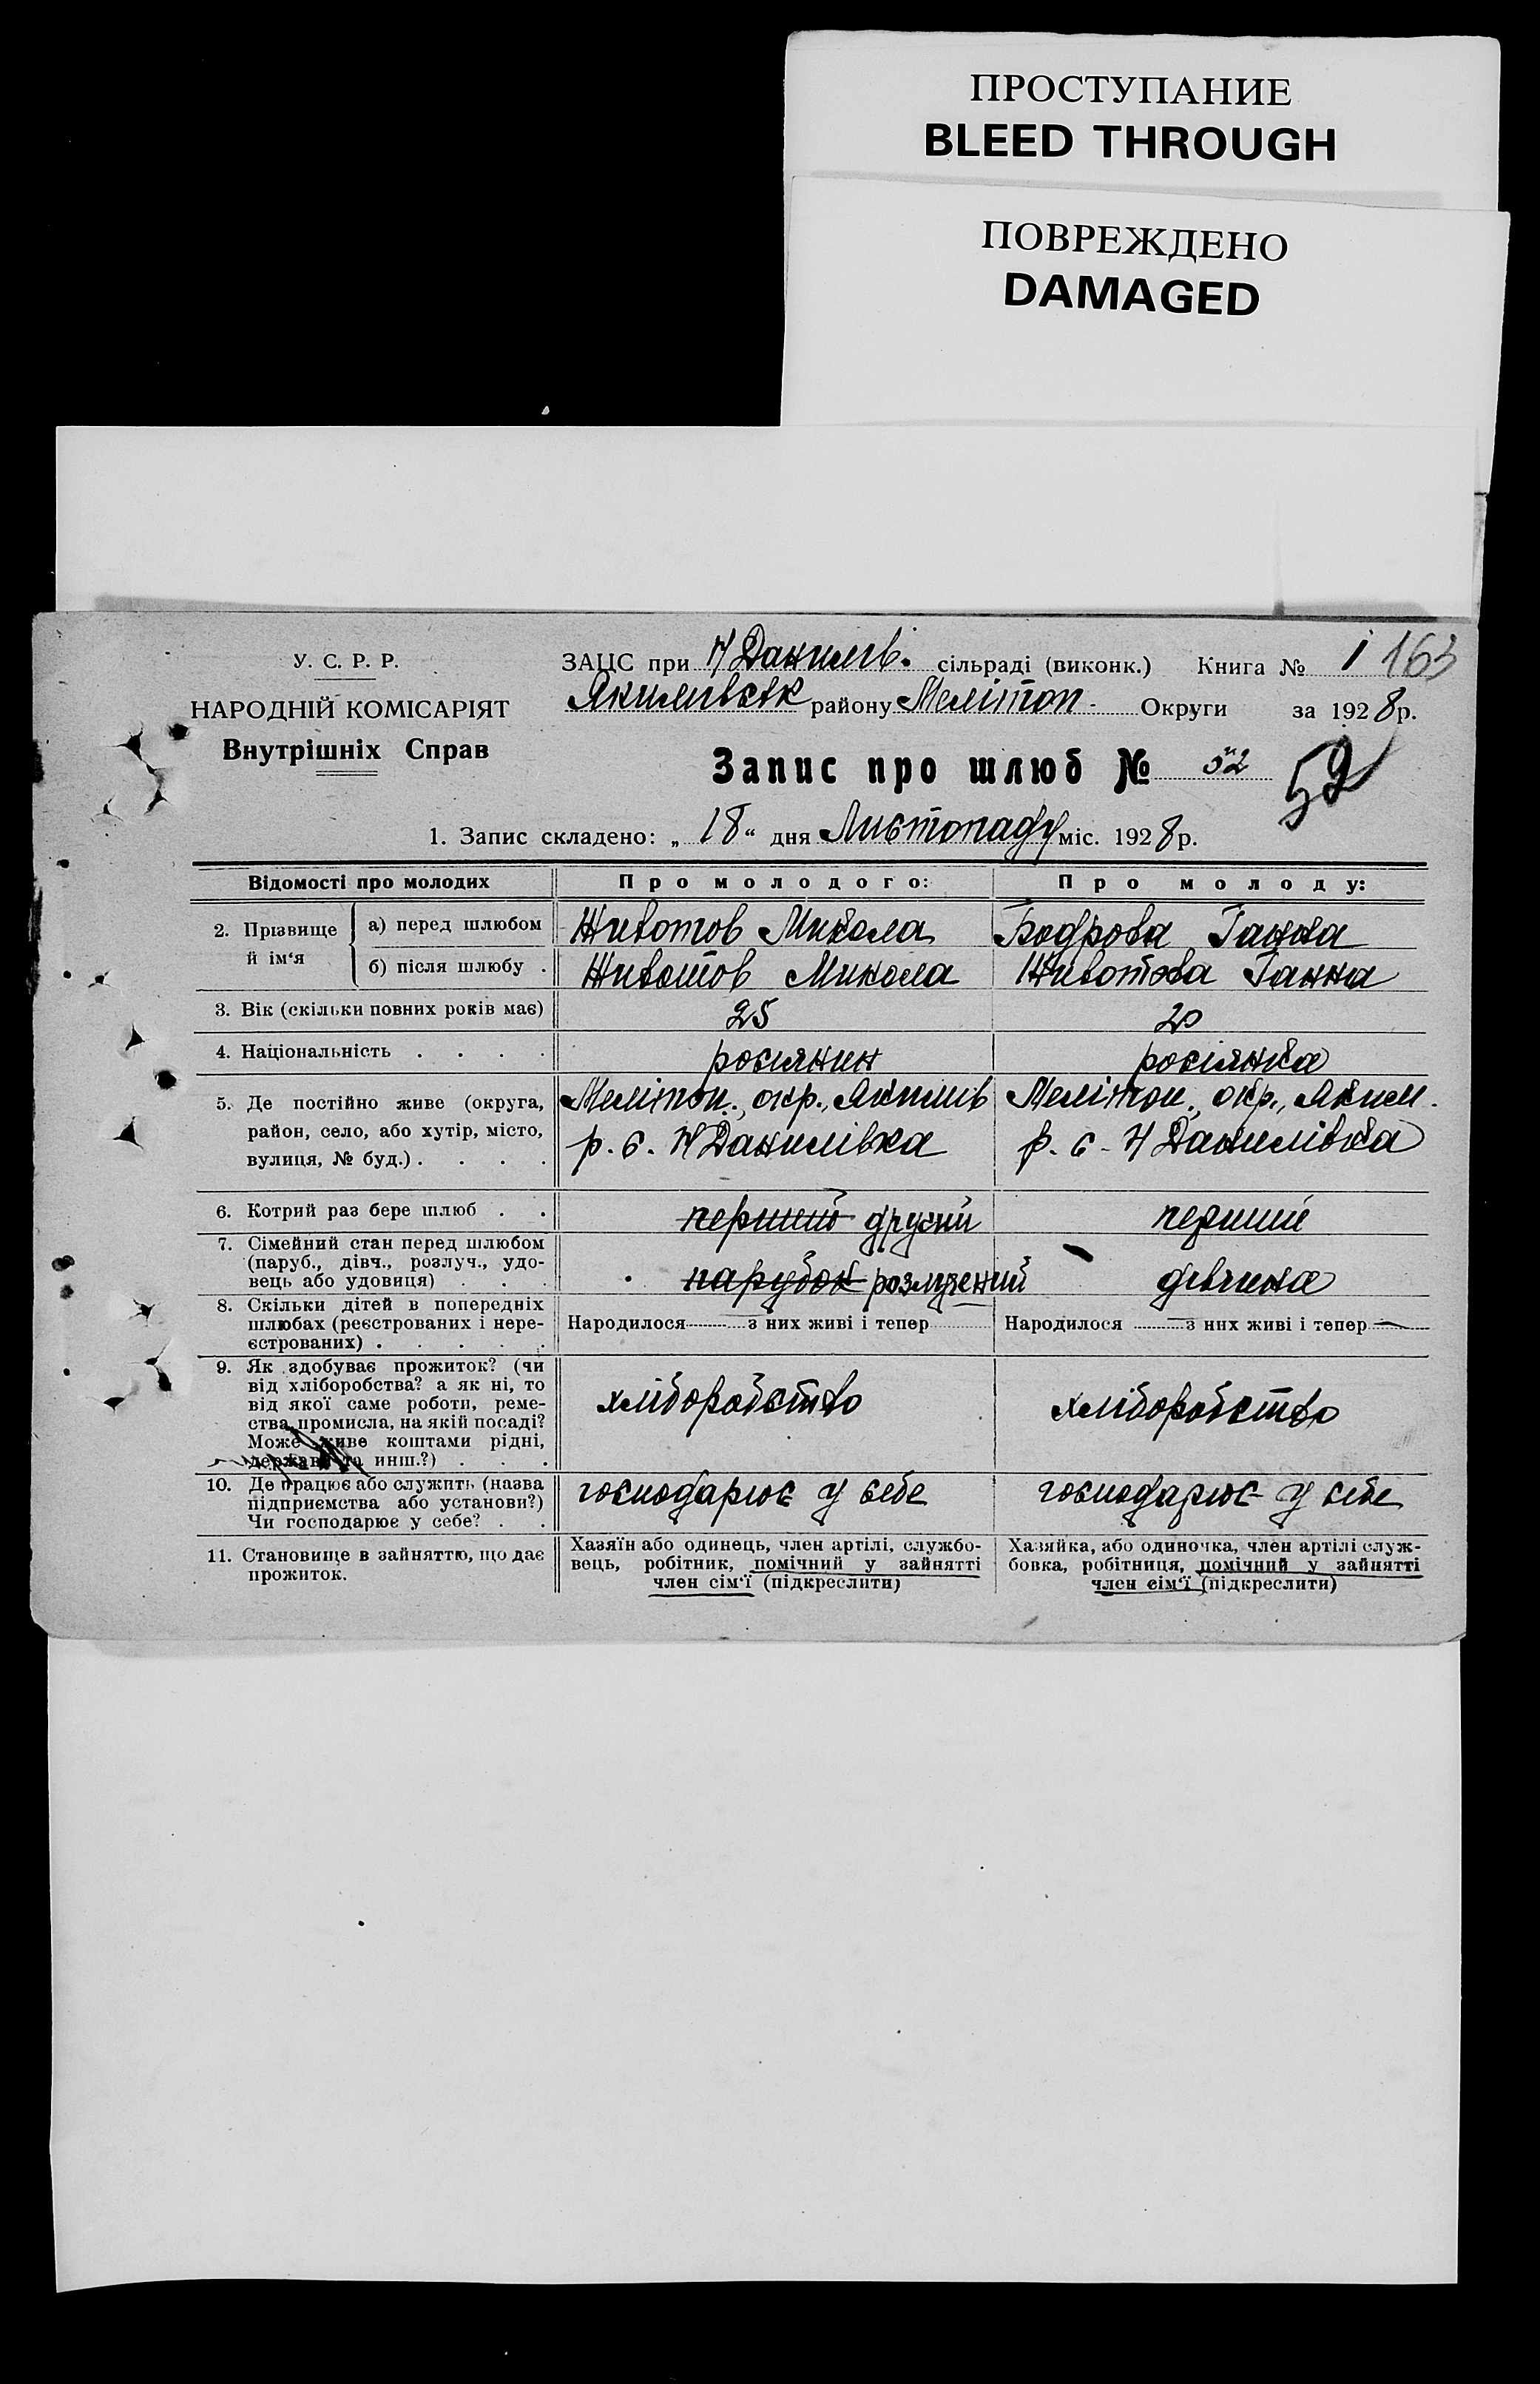 ПРОСТУПАНИЕ
BLEED THROUGH
ПОВРЕЖДЕНО
DAMAGED
У. С. Р. Р.
НАРОДНІЙ КОМІСАРІЯТ
Внутрішніх Справ
ЗАЦС при Н Данилів. сільраді (виконк.) Книга № 1 163
Якимівськ району Мелітоп. Округи за 1928 р.
Запис про шлюб № 52 52
1. Запис складено: „18“ дня Листопаду міс. 1928 р.
Відомості про молодих Про молодого: Про молоду:
2. Прізвище й ім‘я
а) перед шлюбом Животов Микола Бодрова Ганна
б) після шлюбу . Животов Микола Животова Ганна
3. Вік (скільки повних років має) 25 20
4. Національність . . . . росиянин росіянка
5. Де постійно живе (округа, Мелітоп., окр., Якимів Мелітоп., окр., Яким.
район, село, або хутір, місто, р. с. Н Данилівка р. с. Н Данилівка
вулиця, № буд.) . . . .
6. Котрий раз бере шлюб . . перший другий перший
7. Сімейний стан перед шлюбом
(паруб., дівч., розлуч., удо-
вець або удовиця) . . . парубок розлучений дівчина
8. Скільки дітей в попередніх
шлюбах (реєстрованих і нере- Народилося — з них живі і тепер Народилося — з них живі і тепер —
єстрованих) . . . . .
9. Як здобуває прожиток? (чи
від хліборобства? а як ні, то
від якої саме роботи, реме- хліборобство хліборобство
ства, промисла, на якій посаді?
Може живе коштами рідні,
держави та инш.?) . . .
10. Де працює або служить (назва господарює у себе господарює у себе
підприємства або установи?)
Чи господарює у себе? . .
11. Становище в зайняттю, що дає
прожиток.
Хазяїн або одинець, член артілі, службо-
вець, робітник, помічний у зайнятті
член сім‘ї (підкреслити)
Хазяйка, або одиночка, член артілі служ-
бовка, робітниця, помічний у зайнятті
член сім‘ї (підкреслити)